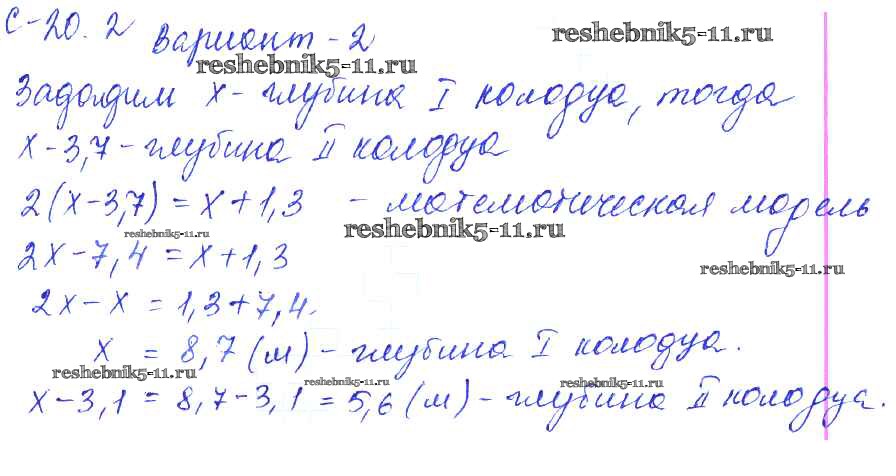 С-20.2 Вариант-2 reshebnik5-11.ru
reshebnik5-11.ru
Зададим х-глубина I колодца, тогда
х-3,7-глубина II колодца
2(х-3,7)=х+1,3 - математическая модель
reshebnik5-11.ru reshebnik5-11.ru
2х-7,4=х+1,3 reshebnik5-11.ru
2х-х=1,3+7,4.
х = 8,7(м)-глубина I колодца.
reshebnik5-11.ru reshebnik5-11.ru reshebnik5-11.ru
х-3,1=8,7-3,1=5,6(м)-глубина II колодца.